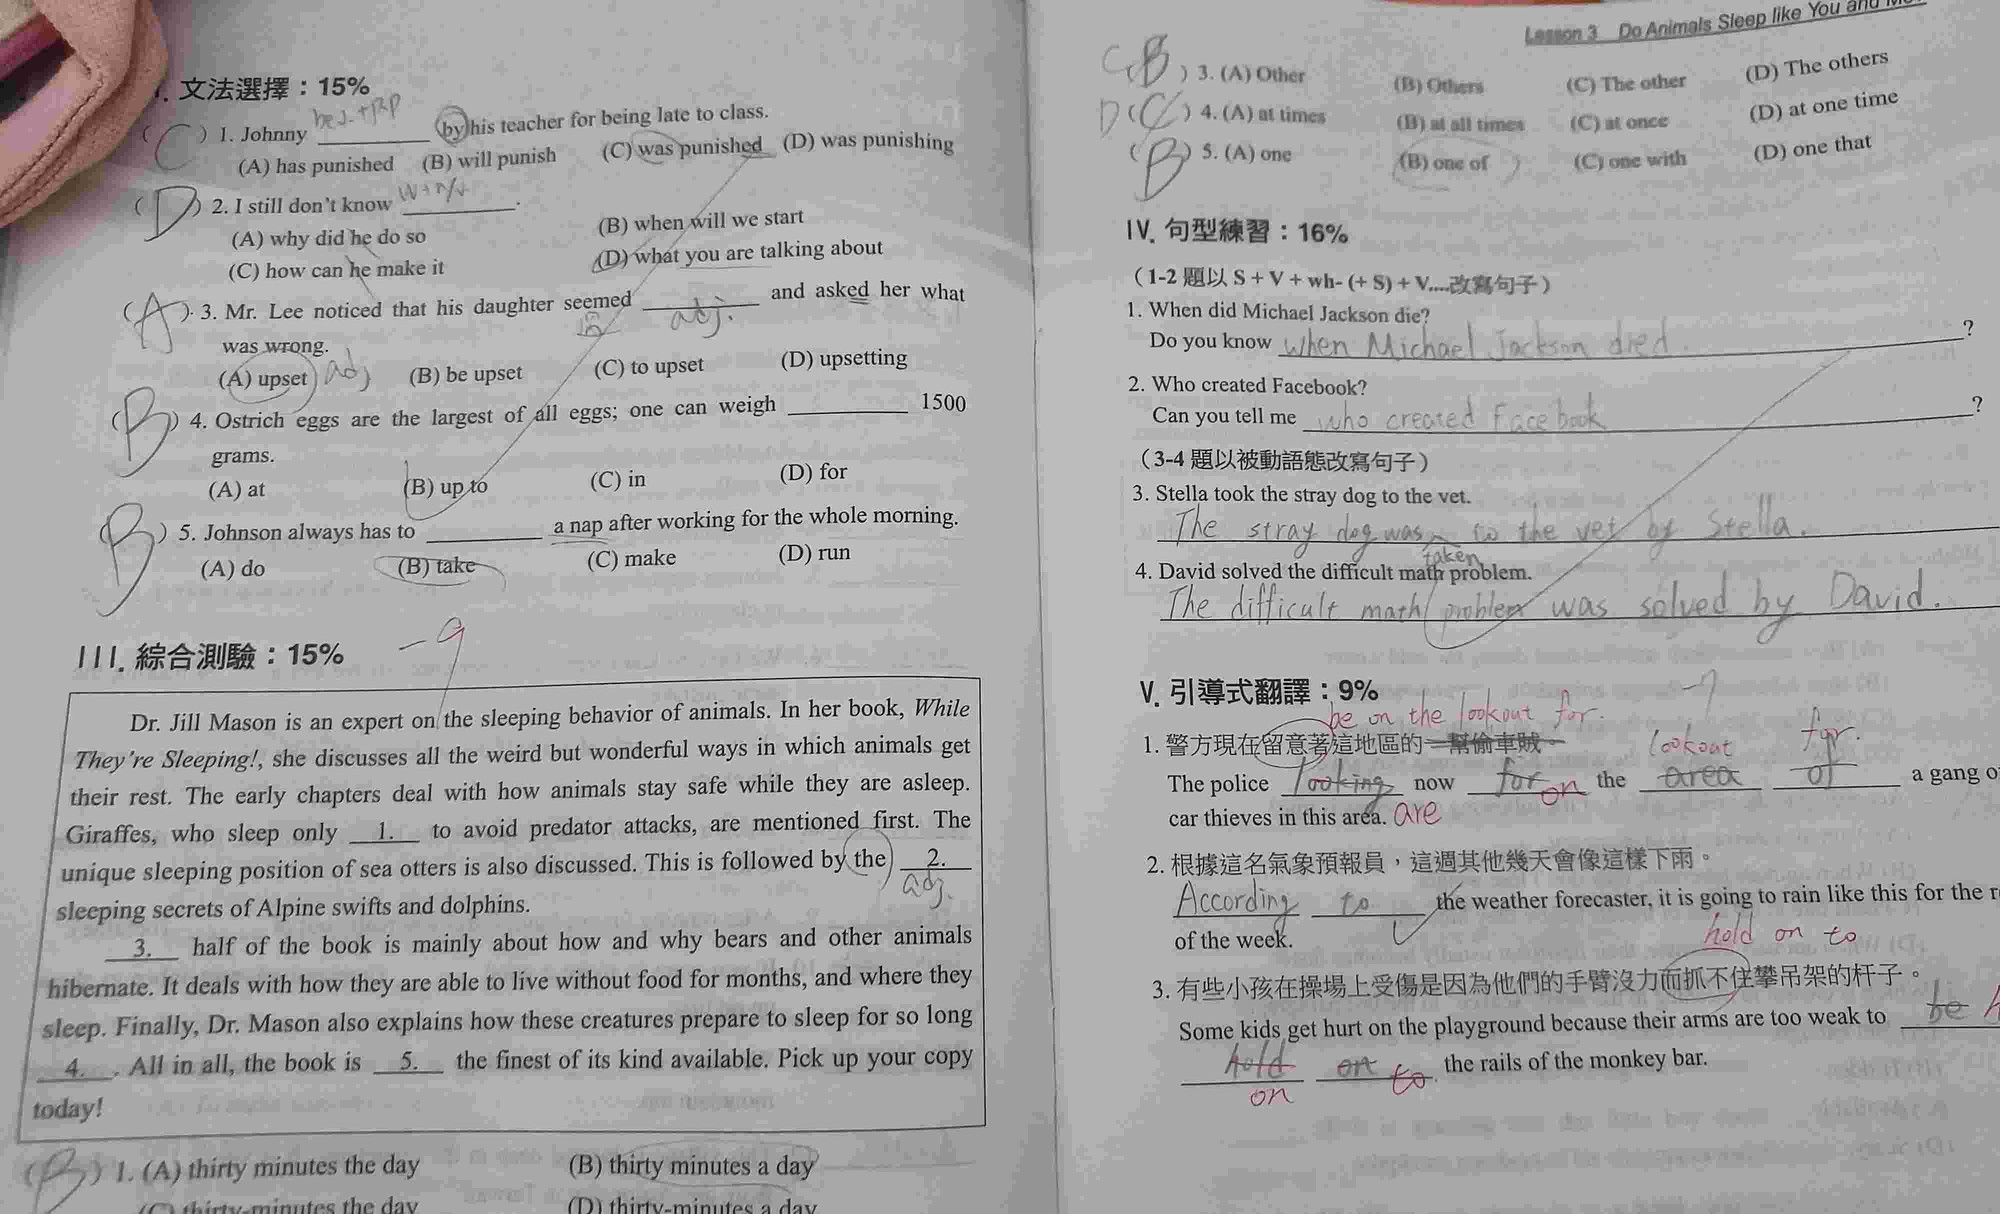 文法選擇：15%
be.+p.p
( C ) 1. Johnny ________ by his teacher for being late to class.
(A) has punished (B) will punish (C) was punished (D) was punishing
( D ) 2. I still don't know ________.
(A) why did he do so (B) when will we start
(C) how can he make it (D) what you are talking about
( A ) 3. Mr. Lee noticed that his daughter seemed ________ and asked her what
adj.
was wrong.
(A) upset adj (B) be upset (C) to upset (D) upsetting
( B ) 4. Ostrich eggs are the largest of all eggs; one can weigh ________ 1500
grams.
(A) at (B) up to (C) in (D) for
( B ) 5. Johnson always has to ________ a nap after working for the whole morning.
(A) do (B) take (C) make (D) run
III. 綜合測驗：15% -9
Dr. Jill Mason is an expert on the sleeping behavior of animals. In her book, While
They're Sleeping!, she discusses all the weird but wonderful ways in which animals get
their rest. The early chapters deal with how animals stay safe while they are asleep.
Giraffes, who sleep only 1. to avoid predator attacks, are mentioned first. The
unique sleeping position of sea otters is also discussed. This is followed by the 2.
adj.
sleeping secrets of Alpine swifts and dolphins.
3. half of the book is mainly about how and why bears and other animals
hibernate. It deals with how they are able to live without food for months, and where they
sleep. Finally, Dr. Mason also explains how these creatures prepare to sleep for so long
4. . All in all, the book is 5. the finest of its kind available. Pick up your copy
today!
( B ) 1. (A) thirty minutes the day (B) thirty minutes a day
(C) thirty-minutes the day (D) thirty-minutes a day
Lesson 3 Do Animals Sleep like You and
C ( B ) 3. (A) Other (B) Others (C) The other (D) The others
D ( C ) 4. (A) at times (B) at all times (C) at once (D) at one time
( B ) 5. (A) one (B) one of (C) one with (D) one that
IV. 句型練習：16%
（1-2 題以 S + V + wh- (+ S) + V....改寫句子）
1. When did Michael Jackson die?
Do you know when Michael Jackson died. ?
2. Who created Facebook?
Can you tell me who created Facebook ?
（3-4 題以被動語態改寫句子）
3. Stella took the stray dog to the vet.
The stray dog was taken to the vet by Stella.
4. David solved the difficult math problem.
The difficult math problem was solved by David.
V. 引導式翻譯：9% -7
be on the lookout for.
1. 警方現在留意著這地區的一幫偷車賊。
lookout for.
The police looking now for on the area of a gang o
car thieves in this area. are
2. 根據這名氣象預報員，這週其他幾天會像這樣下雨。
According to the weather forecaster, it is going to rain like this for the r
of the week.
hold on to
3. 有些小孩在操場上受傷是因為他們的手臂沒力而抓不住攀吊架的杆子。
Some kids get hurt on the playground because their arms are too weak to be
hold on to the rails of the monkey bar.
on